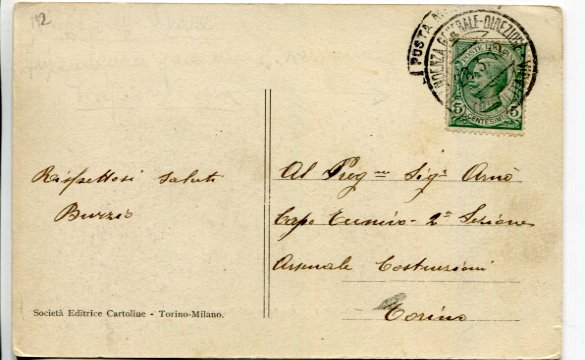 192
POSTA
GENERALE - DIREZIONE
POSTE ITALIANE
5 CENTESIMI 5
Rispettosi saluti
Burzio
Al Preg mo Sigr Arnò
Capo Tecnico - 2a Sezione
Arsenale Costruzioni
Torino
Società Editrice Cartoline - Torino-Milano.